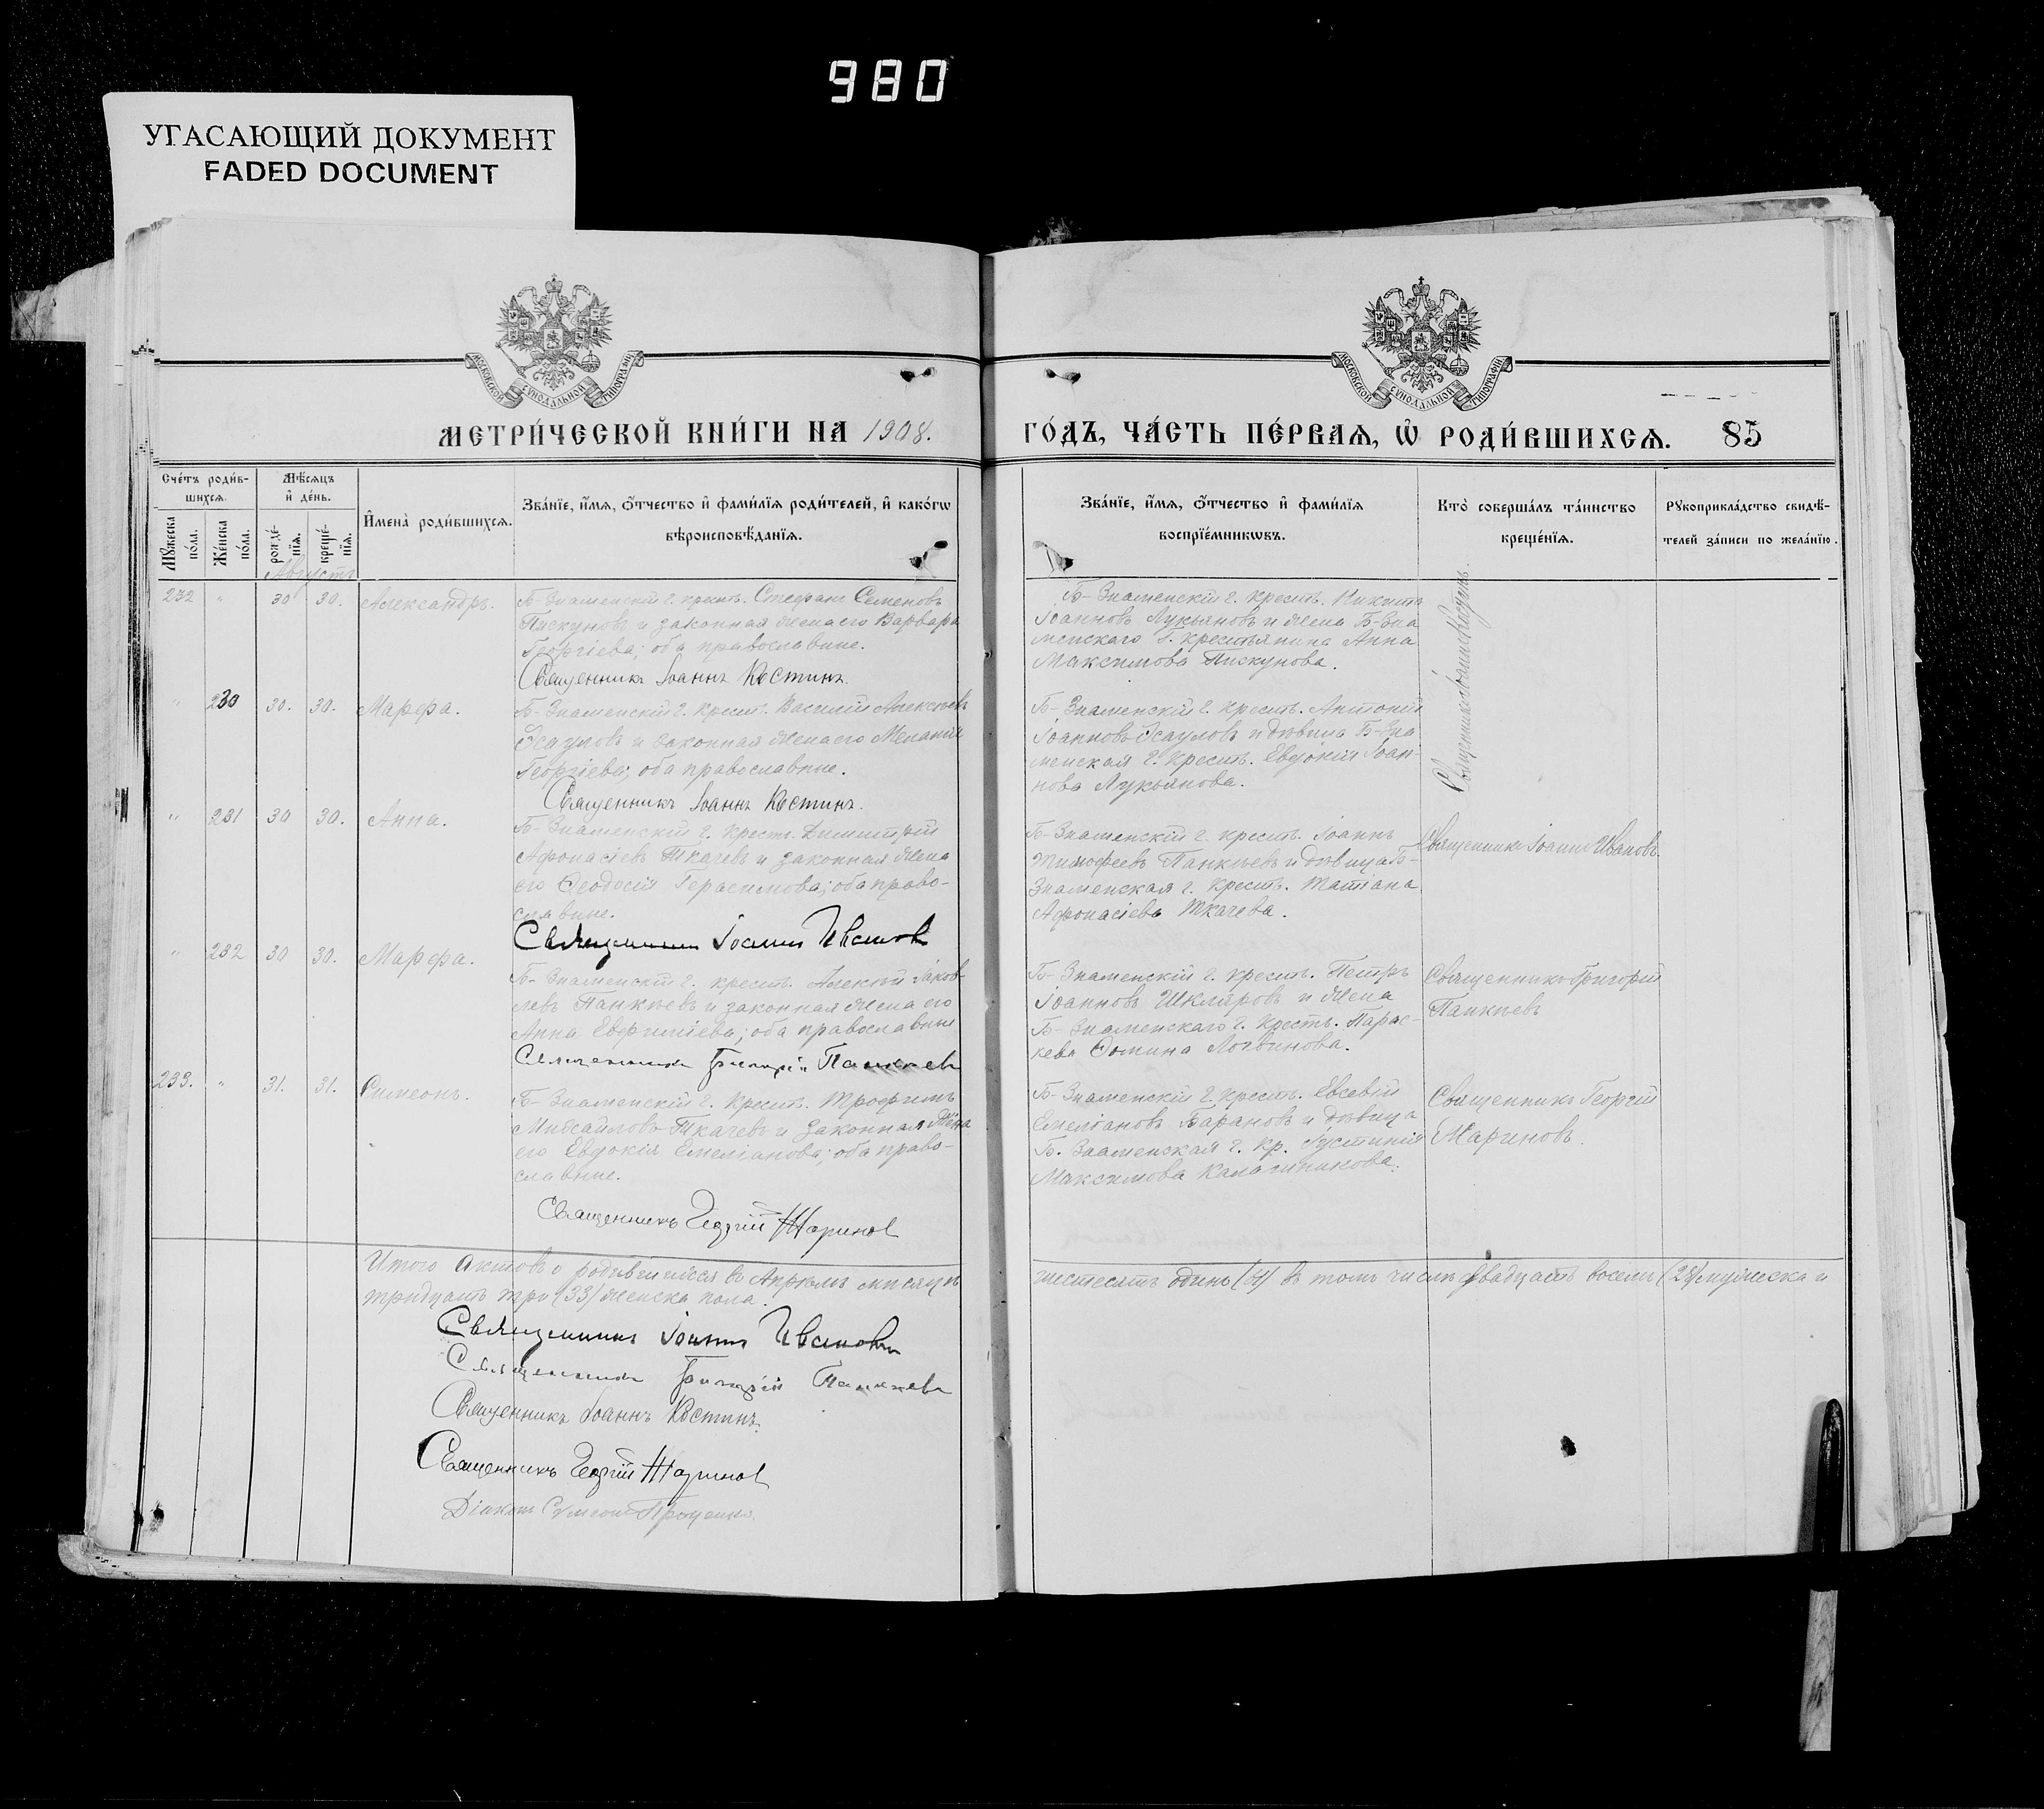 980
УГАСАЮЩИЙ ДОКУМЕНТ
FADED DOCUMENT
МОСКОВСКОЙ СѴНОДАЛЬНОЙ ТИПОГРАФІИ
МОСКОВСКОЙ СѴНОДАЛЬНОЙ ТИПОГРАФІИ
МЕТРИ́ЧЕСКОЙ КНИ́ГИ НА 1908.
ГО́ДЪ, ЧА́СТЬ ПЕ́РВАѦ, Ѽ РОДИ́ВШИХСѦ. 85
Сче́тъ роди́в-
шихсѧ.
Мꙋ́жеска по́ла.
Же́нска по́ла.
Мѣ́сѧцъ
и҆ де́нь.
рожде́-
нїѧ.
креще́-
нїѧ.
И҆мена̀ роди́вшихсѧ.
Зва́нїе, и҆́мѧ, ѻ҆́тчество и҆ фами́лїѧ роди́телей, и҆ како́гѡ
вѣроисповѣ́данїѧ.
Зва́нїе, и҆́мѧ, ѻ҆́тчество и҆ фами́лїѧ
воспрїе́мникѡвъ.
Кто̀ соверша́лъ та́инство
креще́нїѧ.
Рꙋкоприкла́дство свидѣ́-
телей за́писи по жела́нїю.
Августъ
232 " 30 30. Александръ.
Б-Знаменскій г. крест. Стефанъ Семеновъ
Пискуновъ и законная жена его Варвара
Георгіева; оба православные.
Священникъ Іоаннъ Костинъ.
Б-Знаменскій г. крест. Никита
Іоанновъ Лукьяновъ и жена Б-Зна
менскаго г. крестьянина Анна
Максимова Пискунова.
" 230 30. 30. Марѳа.
Б-Знаменскій г. крест. Василій Алексѣевъ
Есауловъ и законная жена его Меланія
Георгіева; оба православные.
Священникъ Іоаннъ Костинъ.
Б-Знаменскій г. крест. Антоній
Іоанновъ Есауловъ и дѣвица Б-Зна
менская г. крест. Евдокія Іоан-
нова Лукьянова.
Священникъ Іоаннъ Костинъ.
" 231 30 30. Анна.
Б-Знаменскій г. крест. Димитрій
Афонасіевъ Ткачевъ и законная жена
его Ѳеодосія Герасимова; оба право-
славные.
Священникъ Іоаннъ Ивановъ
Б-Знаменскій г. крест. Іоаннъ
Тимофеевъ Панкѣевъ и дѣвица Б-
Знаменская г. крест. Татіана
Афонасіева Ткачева.
Священникъ Іоаннъ Ивановъ.
" 232 30 30. Марѳа.
Б-Знаменскій г. крест. Алексій Іаков-
левъ Панкѣевъ и законная жена его
Анна Евфиміева; оба православные
Священникъ Григорій Панкѣевъ
Б-Знаменскій г. крест. Петръ
Іоанновъ Шкляровъ и жена
Б-Знаменскаго г. крест. Парас-
кева Ѳомина Логвинова.
Священникъ Григорій
Панкѣевъ
233. " 31. 31. Симеонъ.
Б-Знаменскій г. крест. Трофимъ
Михайловъ Ткачевъ и законная жена
его Евдокія Емеліанова; оба право-
славные.
Священникъ Георгій Жариновъ
Б-Знаменскій г. крест. Евсевій
Емеліановъ Барановъ и дѣвица
Б. Знаменская г. кр. Іустинія
Максимова Калашникова.
Священникъ Георгій
Жариновъ.
Итого актовъ о родившихся въ Апрѣлѣ мѣсяцѣ шестьдесятъ одинъ (61) въ томъ числѣ двадцать восемь (28) мужеска и
тридцать три (33) женска пола.
Священникъ Іоаннъ Ивановъ
Священникъ Григорій Панкѣевъ
Священникъ Іоаннъ Костинъ.
Священникъ Георгій Жариновъ
Діаконъ Сумеонъ Проценко.